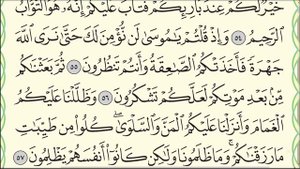 خَيْرٌ لَّكُمْ عِندَ بَارِئِكُمْ فَتَابَ عَلَيْكُمْ إِنَّهُۥ هُوَ ٱلتَّوَّابُ
ٱلرَّحِيمُ ٥٤ وَإِذْ قُلْتُمْ يَٰمُوسَىٰ لَن نُّؤْمِنَ لَكَ حَتَّىٰ نَرَى ٱللَّهَ
جَهْرَةً فَأَخَذَتْكُمُ ٱلصَّٰعِقَةُ وَأَنتُمْ تَنظُرُونَ ٥٥ ثُمَّ بَعَثْنَٰكُم
مِّنۢ بَعْدِ مَوْتِكُمْ لَعَلَّكُمْ تَشْكُرُونَ ٥٦ وَظَلَّلْنَا عَلَيْكُمُ
ٱلْغَمَامَ وَأَنزَلْنَا عَلَيْكُمُ ٱلْمَنَّ وَٱلسَّلْوَىٰ كُلُوا۟ مِن طَيِّبَٰتِ
مَا رَزَقْنَٰكُمْ وَمَا ظَلَمُونَا وَلَٰكِن كَانُوٓا۟ أَنفُسَهُمْ يَظْلِمُونَ ٥٧